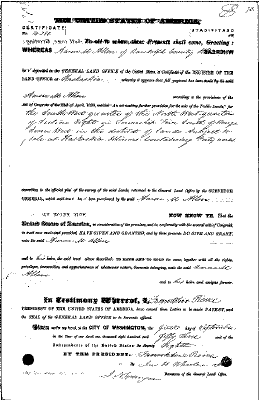 THE UNITED STATES OF AMERICA,
CERTIFICATE
To all to whom these Presents shall come, Greeting:
WHEREAS Aaron M. Allen of Randolph County
deposited in the GENERAL LAND OFFICE of the United States, a Certificate of the REGISTER OF THE
LAND OFFICE at Kaskaskia whereby it appears that full payment has been made by the said
Aaron M. Allen
according to the provisions of the
Act of Congress of the 24th of April, 1820, entitled "An act making further provision for the sale of the Public Lands," for
the South West quarter of the North West quarter
of Section Eighteen in Township Five South of Range
West in the district of Lands Subject to
Sale at Kaskaskia Illinois Containing Forty
according to the official plat of the survey of the said Lands, returned to the General Land Office by the SURVEYOR
GENERAL, which said tract has been purchased by the said Aaron M. Allen
NOW KNOW YE, That the
United States of America, in consideration of the premises, and in conformity with the several acts of Congress,
in such case made and provided, HAVE GIVEN AND GRANTED, and by these presents DO GIVE AND GRANT,
unto the said Aaron M. Allen
and to his heirs, the said tract above described: TO HAVE AND TO HOLD the same, together with all the rights,
privileges, immunities, and appurtenances of whatsoever nature, thereunto belonging, unto the said Aaron M.
Allen
and to his heirs and assigns forever.
In Testimony Whereof, I, Franklin Pierce
PRESIDENT OF THE UNITED STATES OF AMERICA, have caused these Letters to be made PATENT, and
the SEAL of the GENERAL LAND OFFICE to be hereunto affixed.
Given under my hand, at the CITY OF WASHINGTON, the first day of September
in the Year of our Lord one thousand eight hundred and fifty and of the
Independence of the United States the Seventy
BY THE PRESIDENT: Franklin Pierce
By
Recorder of the General Land Office.